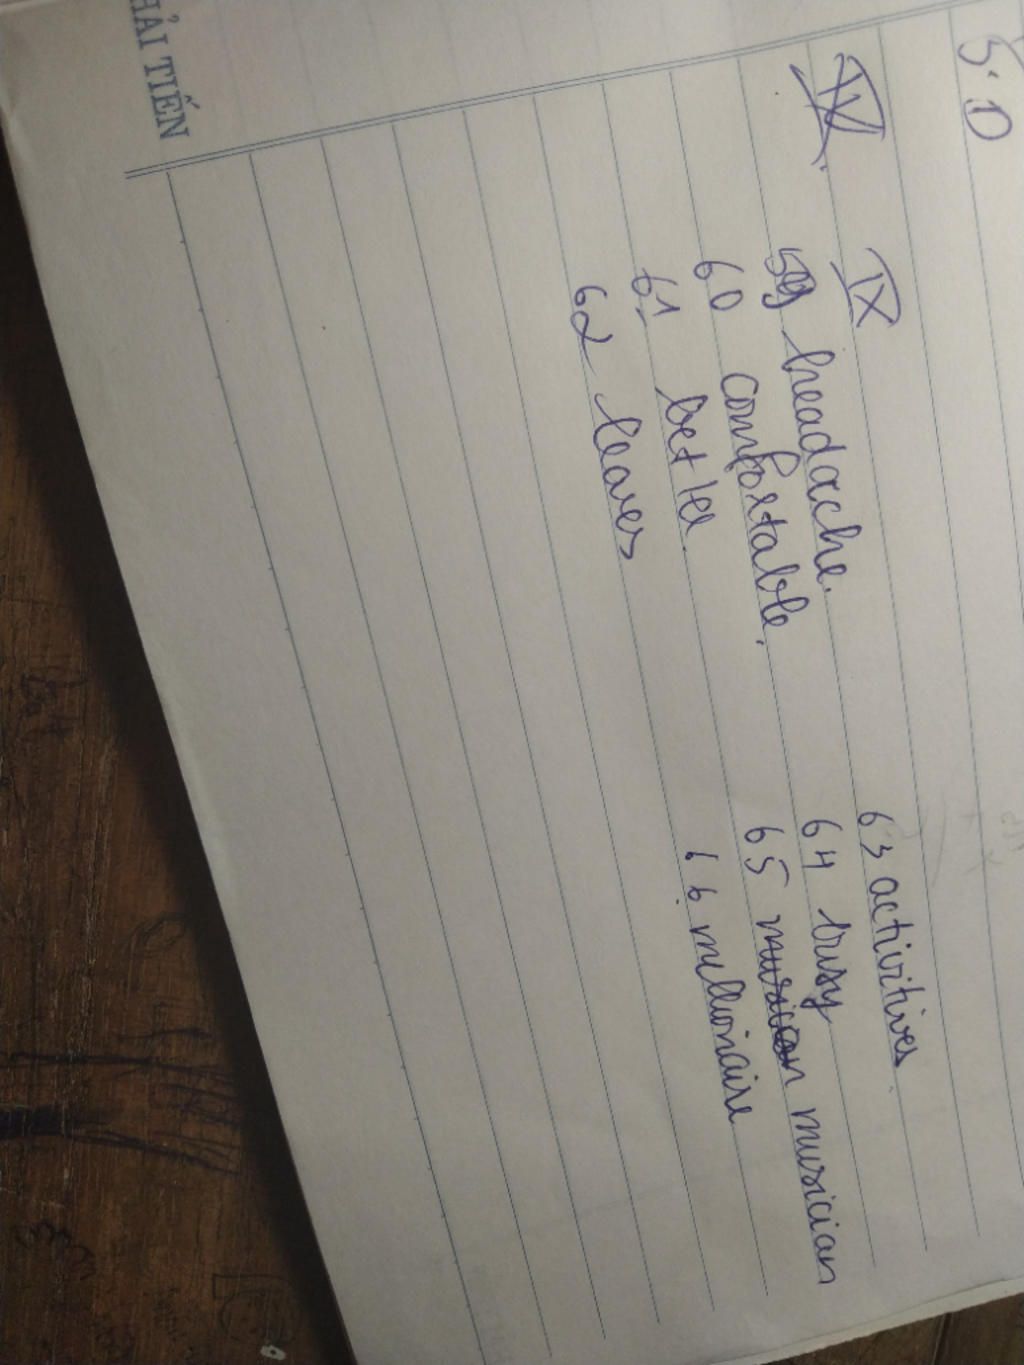 HẢI TIẾN
5. D
IX
59 headache.
60 comfortable.
61. better
62 leaves
63 activities.
64 busy
65 musician
66 millionaire